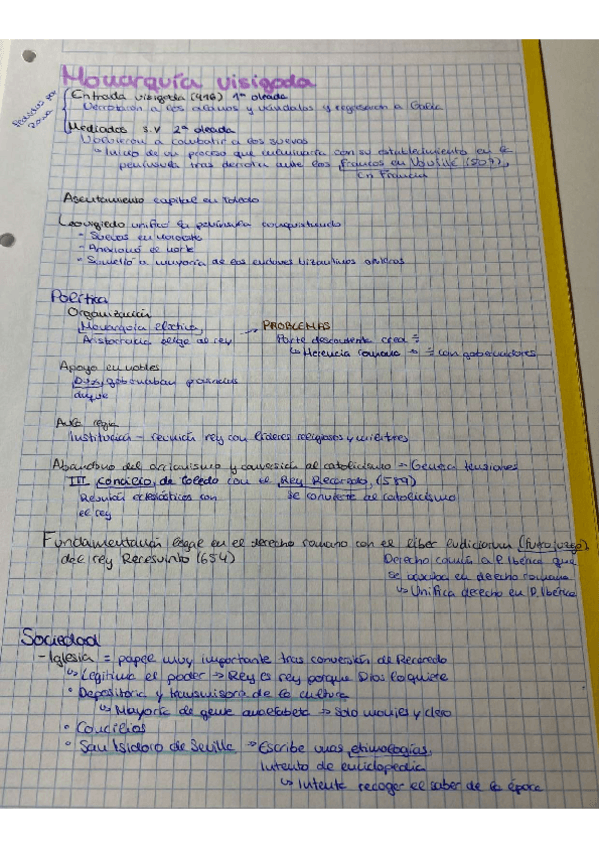 Monarquía visigoda
Pedidas por Roma
Entrada visigoda (416) 1ª oleada
Derrotaron a los alanos y vándalos y regresaron a Galia
Mediados s.V 2ª oleada
Volvieron a combatir a los suevos
↳ Inicio de un proceso que culminaría con su establecimiento en la
península tras derrota ante los francos en Vouillé (507),
en Francia
Asentamiento capital en Toledo
Leovigildo unificó la península conquistando
- Suevos en noroeste
- Anexionó el norte
- Sometió a mayoría de los enclaves bizantinos
Política
Organización
Monarquía electiva, → PROBLEMAS
Aristocracia elige al rey Parte descontenta crea
↳ Herencia romana con gobernadores
Apoyo en nobles
Dux, gobernaban provincias
duque
Aula regia
Institución - reunían rey con líderes religiosos y militares
Abandono del arrianismo y conversión al catolicismo → Genera tensiones
III concilio de Toledo con el Rey Recaredo, (589)
Reunión eclesiásticos con se convierte al catolicismo
el rey
Fundamentación legal en el derecho romano con el liber Iudiciorum (fuero juzgo)
del rey Recesvinto (654) Derecho común a P. Ibérica que
se basaba en derecho romano
↳ Unifica derecho en P. Ibérica
Sociedad
- Iglesia = papel muy importante tras conversión de Recaredo
↳ Legitima el poder → Rey es rey porque Dios lo quiere
• Depositaria y transmisora de la cultura
↳ Mayoría de gente analfabeta → Solo monjes y clero
• Concilios
• San Isidoro de Sevilla → Escribe unas etimologías,
Intento de enciclopedia
↳ Intenta recoger el saber de la época